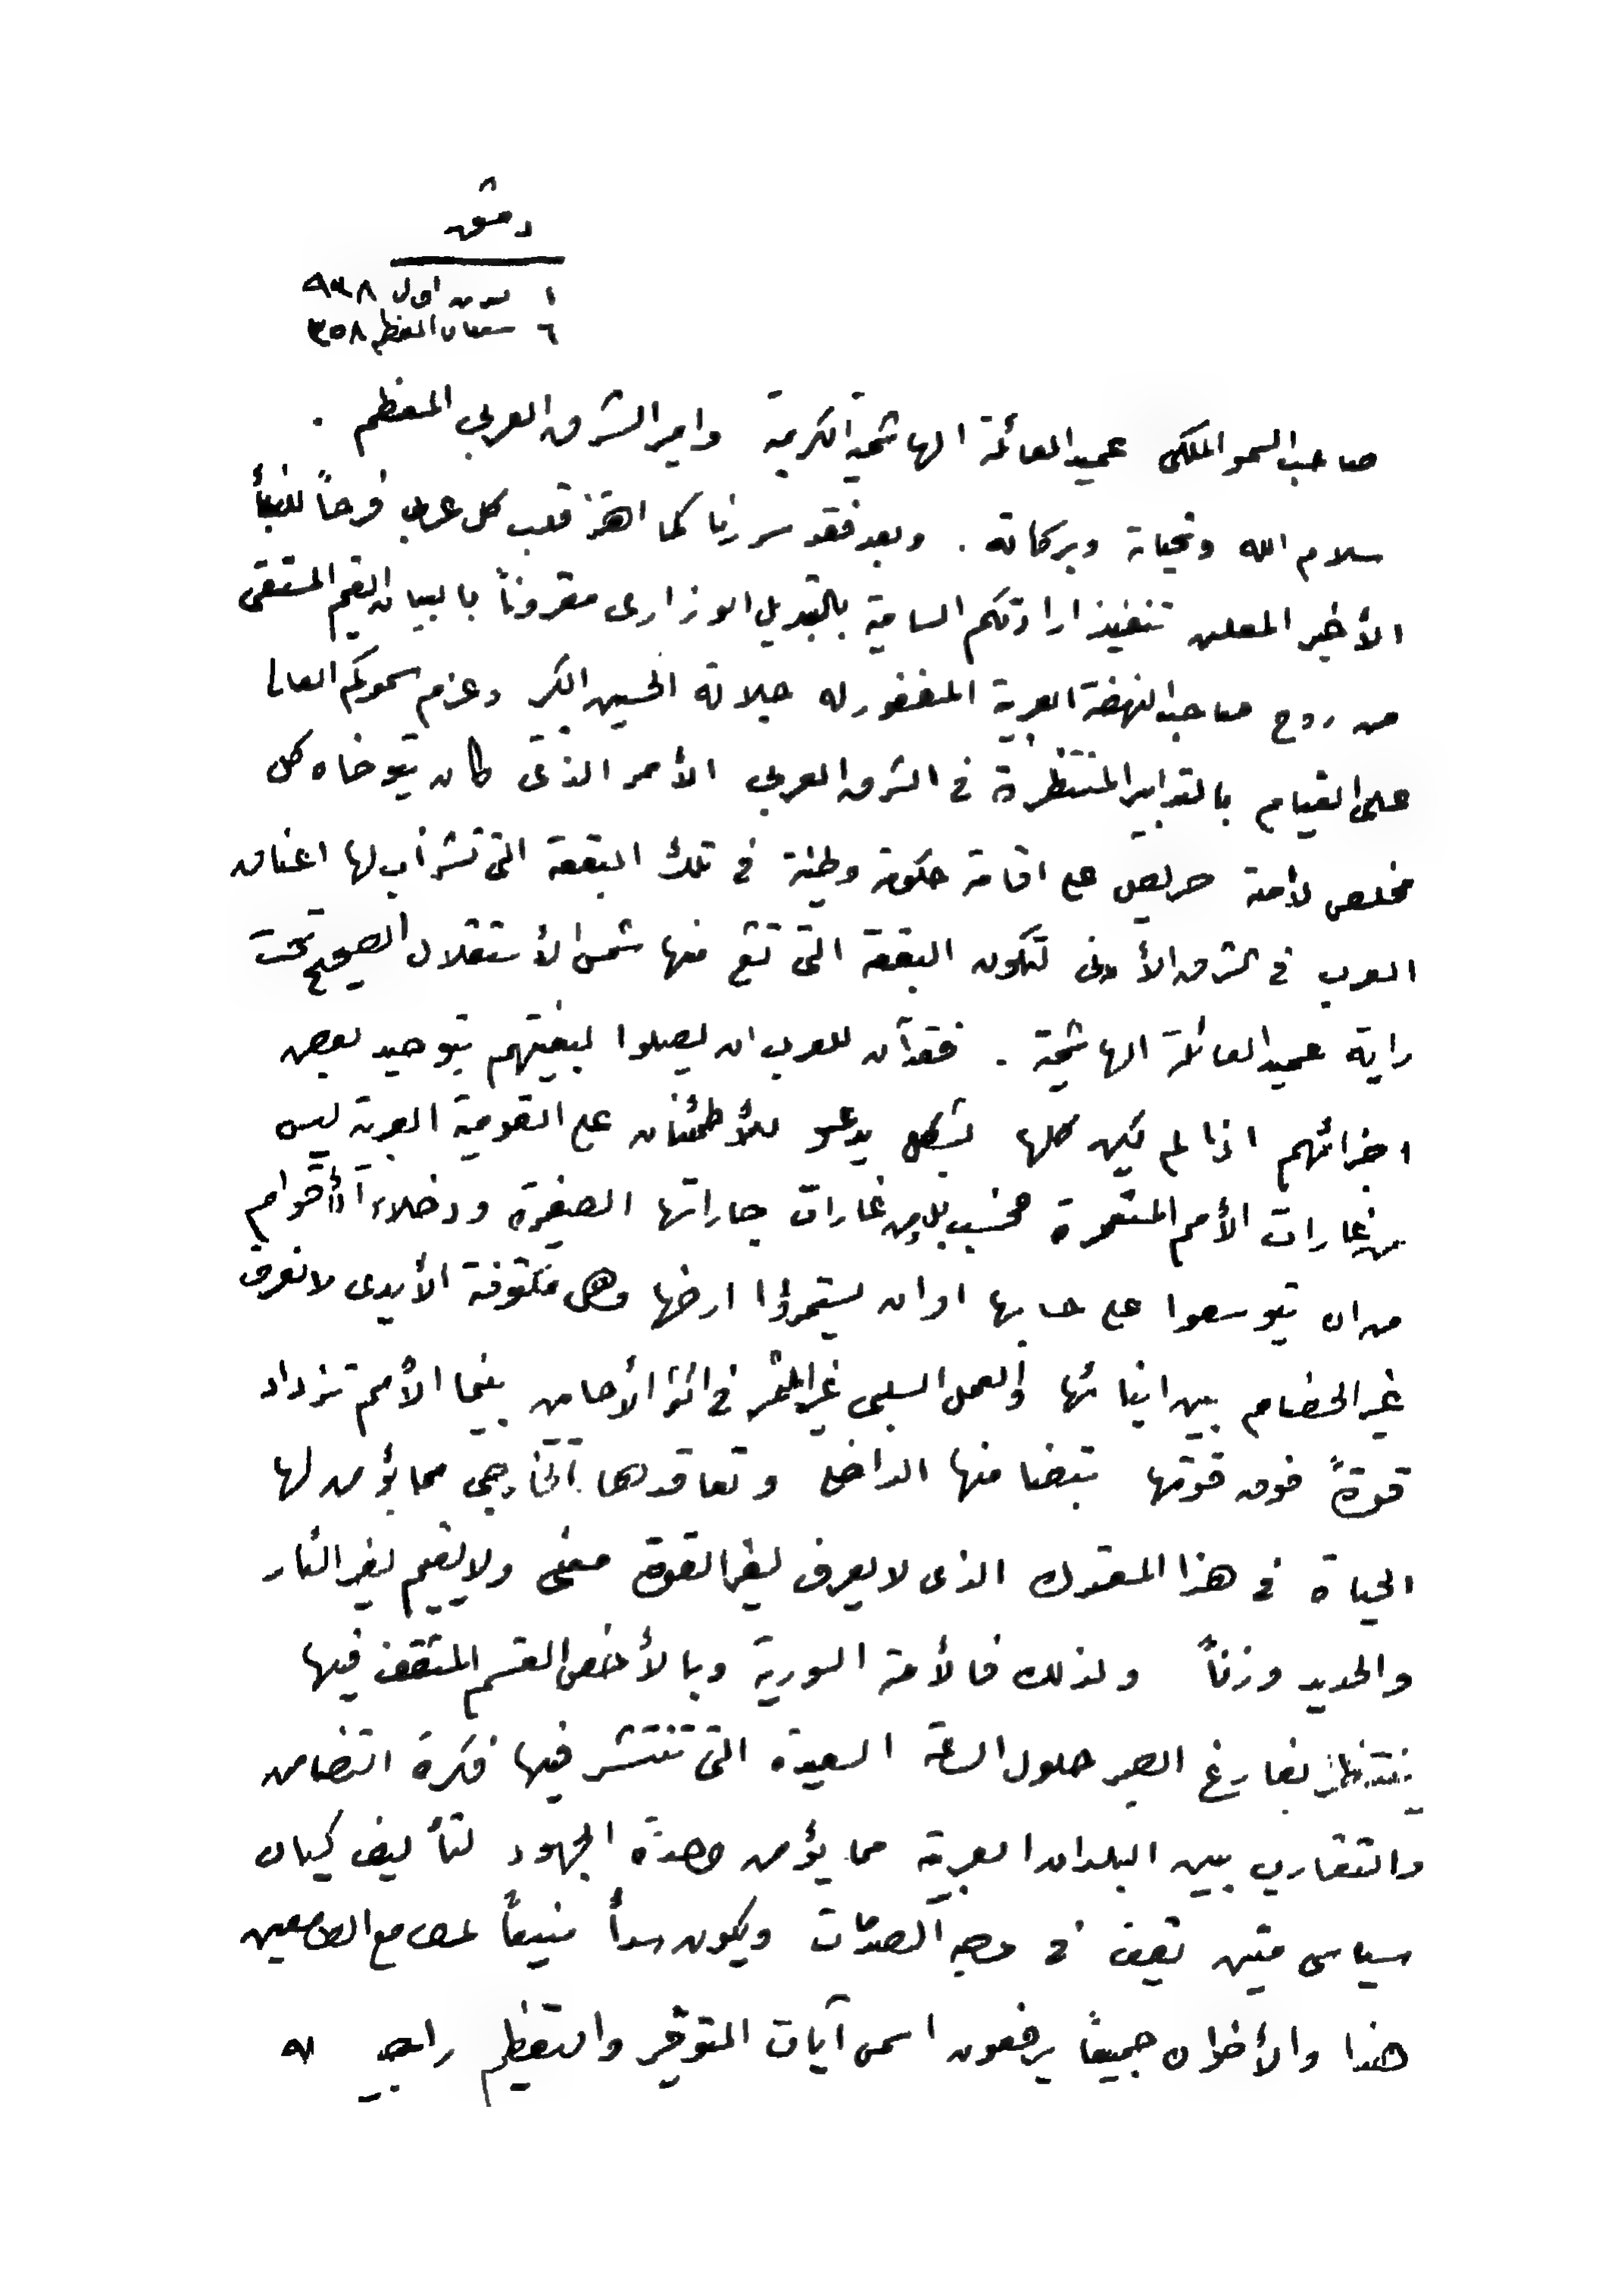 دمشق
١ تشرين اول ٩٣٨
٦ شعبان المعظم ٣٥٨
صاحب السمو الملكي عميد العائلة الهاشمية الكريمة وامير الشرق العربي المعظم .
سلام الله وتحياته وبركاته . وبعد فقد سررنا كما اهتز قلب كل عربي فرحاً للنبأ
الأخير المعلن تنفيذ ارادتكم السامية بالتبديل الوزارى مقروناً بالبيان القيم المستقى
من روح صاحب النهضة العربية المغفور له جلالة الحسين الكبير وعزم سموكم العالي
على القيام بالتدابير المنتظرة في الشرق العربي الأمر الذي كان يتوخاه كل
مخلص لامته حريص على اقامة حكومة وطنية في تلك البقعة التي تشرأب لها اعناق
العرب في الشرق الأدنى لتكون البقعة التي تشع منها شمس الأستقلال الصحيح تحت
راية عميد العائلة الهاشمية . فقد آن للعرب ان يصلوا لبغيتهم بتوحيد بعض
اجزائهم اذا لم يكن كلها بشكل يدعو للأطمئنان على القومية العربية ليس
من غارات الأمم المستعمرة فحسب بل من غارات جاراتها الصغيرة ودخلاء الأقوام
من ان يتوسعوا على حسابها او ان يستعمروا ارضها وهي مكتوفة الأيدى لا تعرف
غير الخصام بين ابنائها والعمل السلبي غير المثمر في اكثر الأحايين بينما الأمم تزداد
قوةً فوق قوتها بتضامنها الداخلي وتعاقدها الخارجي مما يؤمن لها
الحياة في هذا المعترك الذي لا يعرف لغير القوة معنى ولا يقيم لغير النار
والحديد وزناً ولذلك فالأمة السورية وبالأخص القسم المثقف فيها
ينتظر بفارغ الصبر حلول الساعة السعيدة التي تنتشر فيها فكرة التضامن
والتقارب بين البلدان العربية مما يؤمن وحدة الجهود لتأليف كيان
سياسي متين يقف في وجه الصدمات ويكون سداً منيعاً لمطامع الطامعين
هذا والأخوان جميعاً يرفعون اسمى آيات التوقير والتعظيم